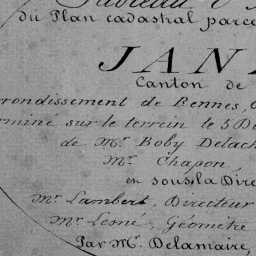 Tableau d
du Plan cadastral parce
JAN
Canton de
rrondissement de Rennes,
erminé sur le terrein le 5 D
de Mr. Boby Delach
Mr. Chapon,
en sous la Dire
Mr. Lambert, Directeur
Mr. Lesné, Géomètre
Par Mr. Delamaire,